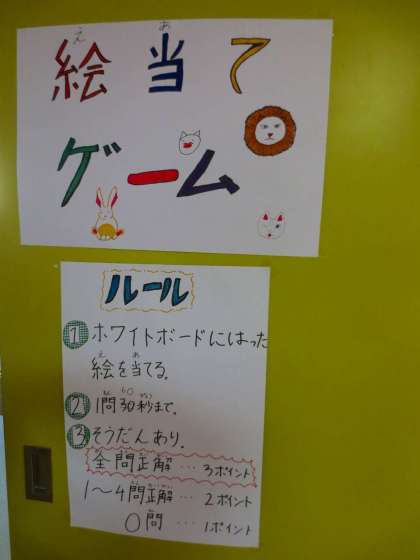 絵当て
え あ
ゲーム
ルール
① ホワイトボードにはった
絵を当てる。
え あ
② 1問30秒まで。
③ そうだんあり。
全問正解…3ポイント
1〜4問正解…2ポイント
0問…1ポイント